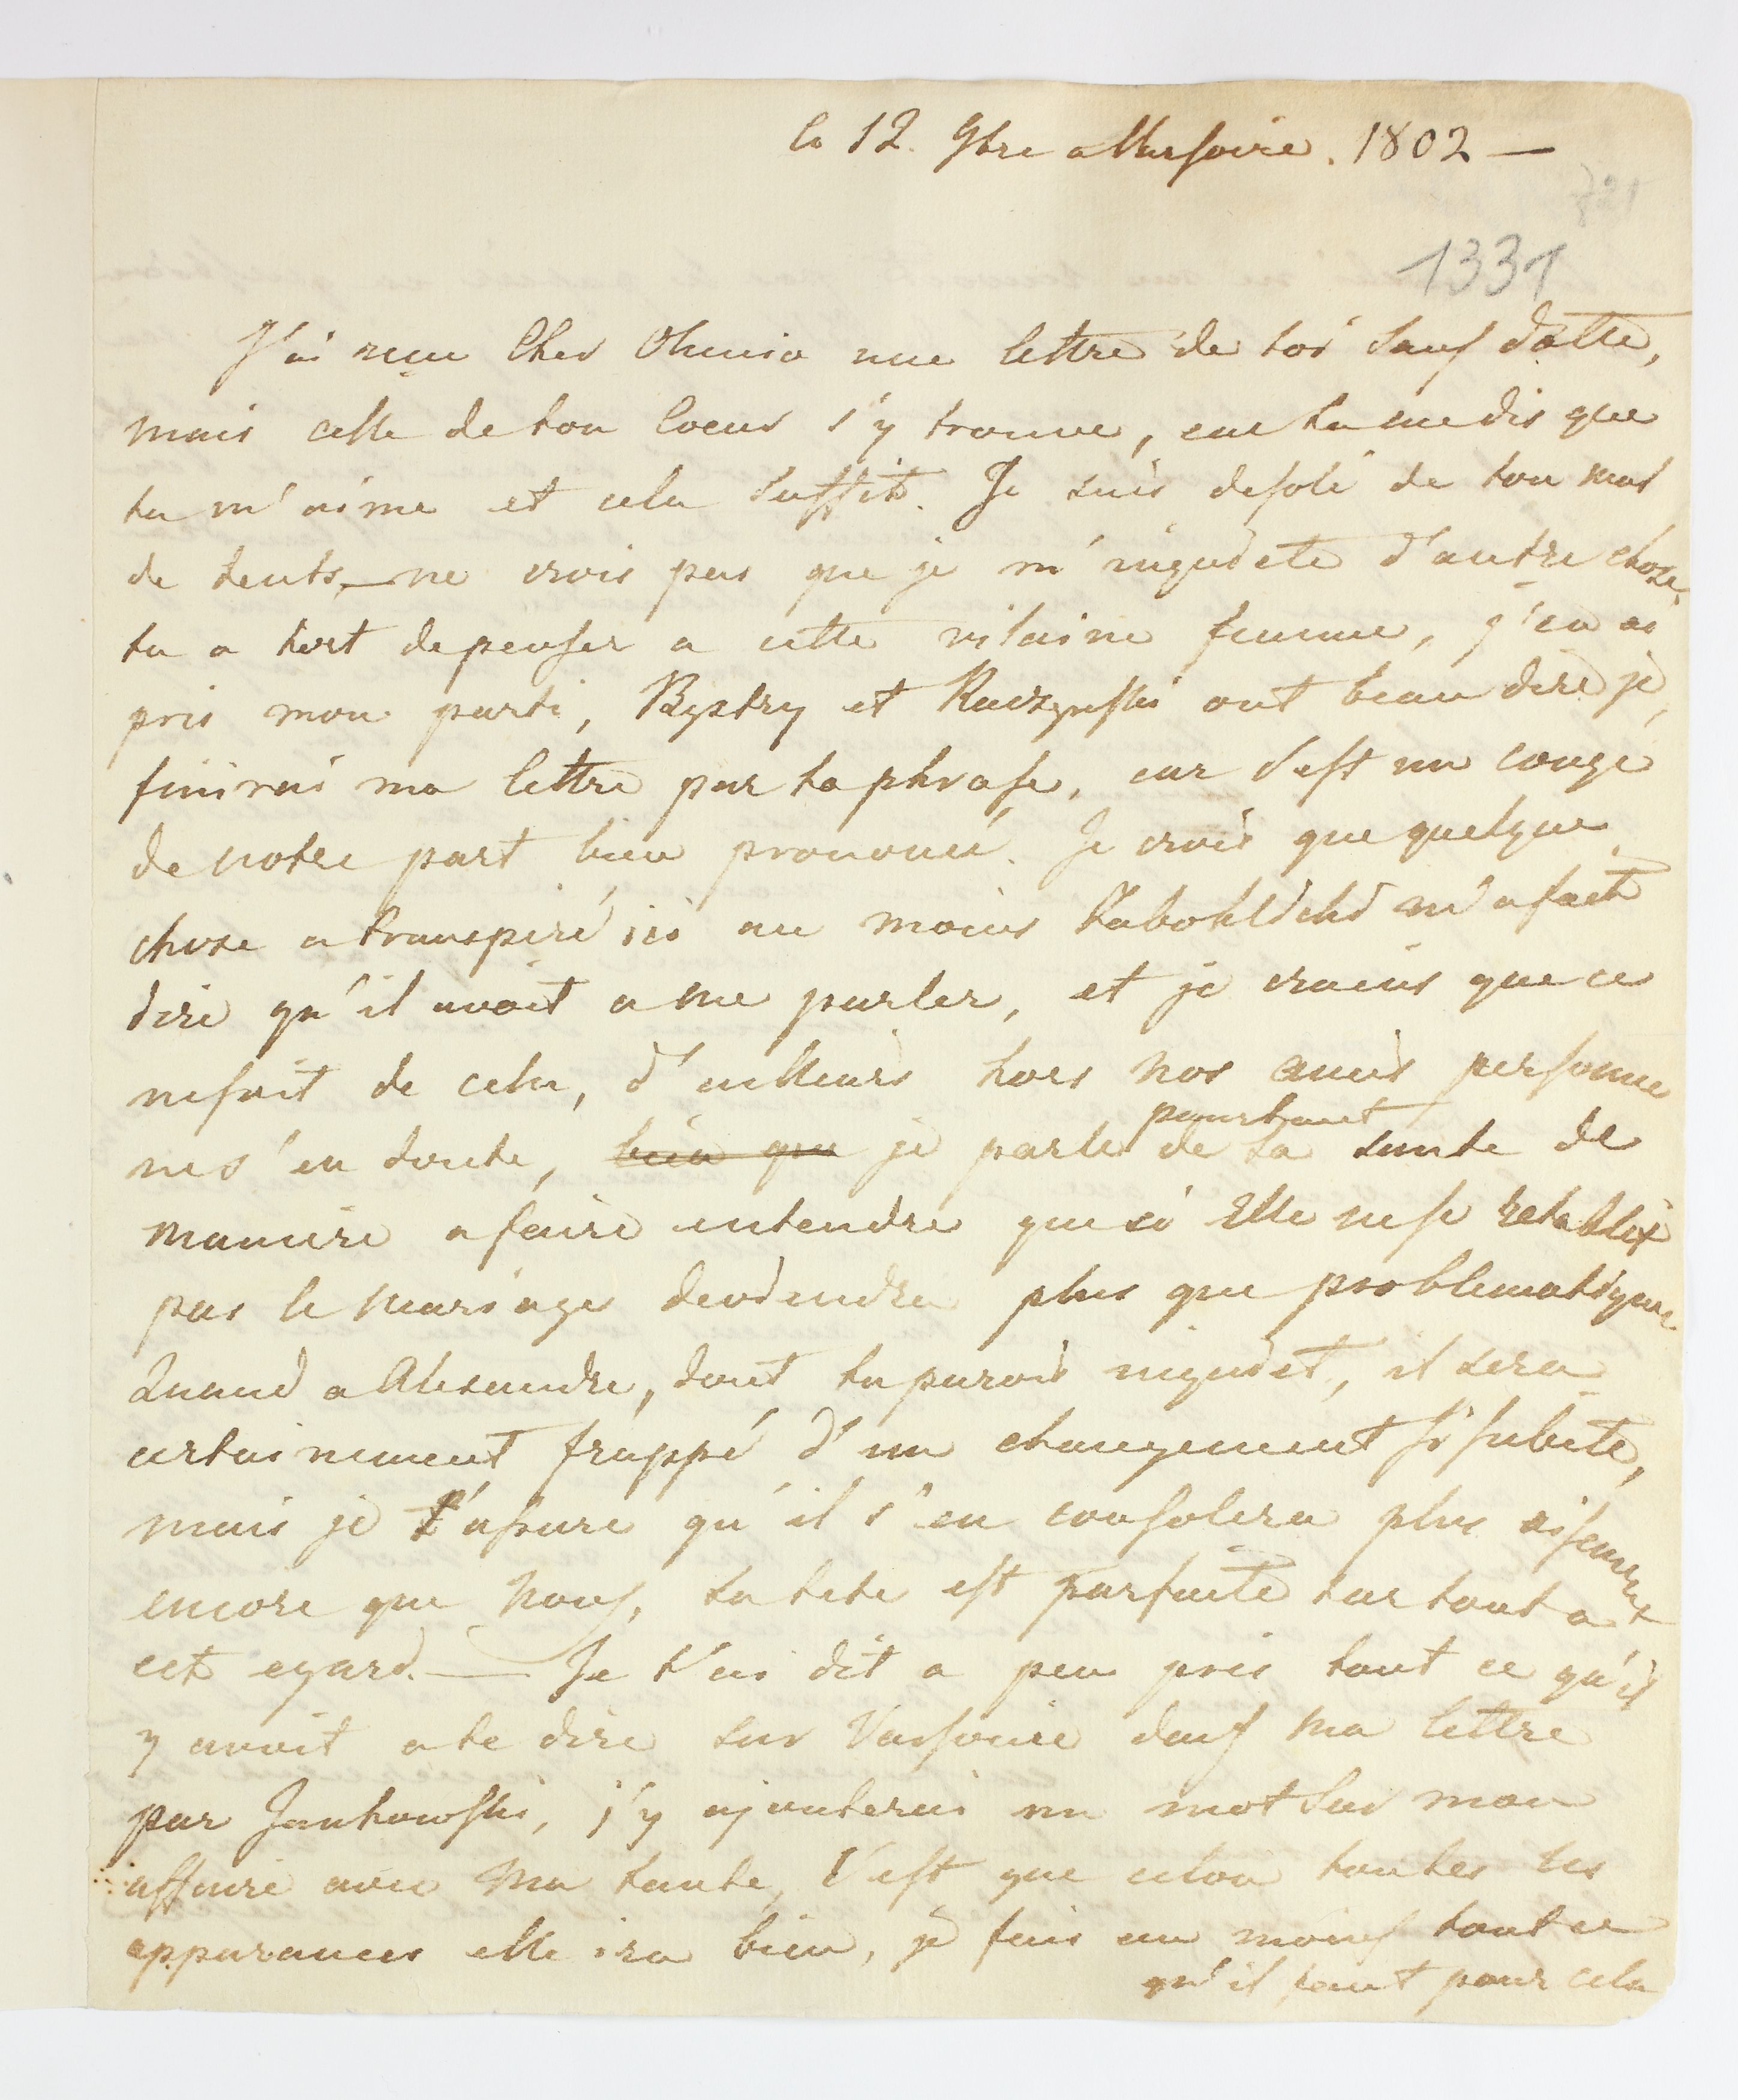 le 12. 9bre a Varsovie. 1802 —
721
1331
J'ai reçu Cher Olunio une lettre de toi sans datte,
mais celle de ton Coeur s'y trouve, car tu me dis que
tu m'aime et cela suffit. Je suis desolé de ton mal
de dents, — ne crois pas que je m'inquiete d'autre chose,
tu a tort de penser a cette vilaine femme, j'en ai
pris mon parti, Bystry et Raczynski ont beau dire je
finirai ma lettre par ta phrase, car c'est un congé
de notre part bien prononcé. Je crois que quelque
chose a transpiré ici au moins m'a fait
dire qu'il avoit a me parler, et je crains que ce
ne soit de cela, d'ailleurs hors nos amis personne
ne s'en doute, bien que je parle pourtant de sa sante de
maniere a faire entendre que si Elle ne se retablit
pas le mariage deviendra plus que problematique.
Quand a Alexandre, dont tu parois inquiet, il sera
certainement frappé d'un changement si subite,
mais je t'assure qu'il s'en consolera plus aisement
encore que nous, sa tete est parfaite surtout a
cet egard. — Je t'ai dit a peu près tout ce qu'il
y avoit a te dire sur Varsovie dans ma lettre
par Jankowski, j'y ajouterai un mot sur mon
affaire avec Ma tante, C'est que selon toutes les
apparances elle ira bien, je fais au moins tout ce
qu'il faut pour cela